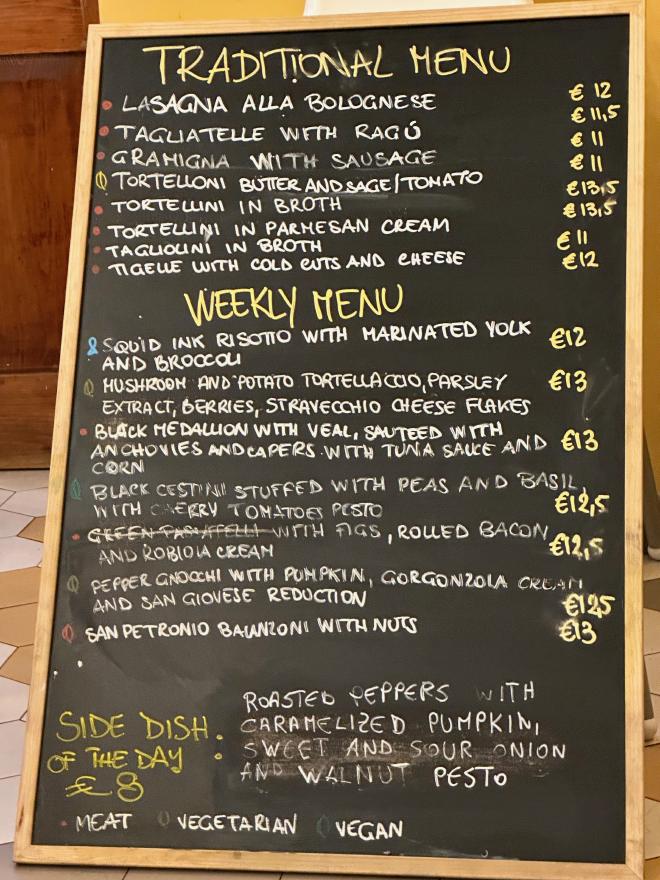 TRADITIONAL MENU
LASAGNA ALLA BOLOGNESE € 12
TAGLIATELLE WITH RAGÚ € 11,5
GRAMIGNA WITH SAUSAGE € 11
TORTELLONI BUTTER AND SAGE/TOMATO € 11
TORTELLINI IN BROTH €13,5
TORTELLINI IN PARMESAN CREAM €13,5
TAGLIOLINI IN BROTH € 11
TIGELLE WITH COLD CUTS AND CHEESE €12
WEEKLY MENU
SQUID INK RISOTTO WITH MARINATED YOLK €12
AND BROCCOLI
MUSHROOM AND POTATO TORTELLACCIO, PARSLEY €13
EXTRACT, BERRIES, STRAVECCHIO CHEESE FLAKES
BLACK MEDALLION WITH VEAL, SAUTEED WITH
ANCHOVIES AND CAPERS WITH TUNA SAUCE AND €13
CORN
BLACK CESTINI STUFFED WITH PEAS AND BASIL,
WITH CHERRY TOMATOES PESTO €12,5
GREEN PASSATELLI WITH FIGS, ROLLED BACON
AND ROBIOLA CREAM €12,5
PEPPER GNOCCHI WITH PUMPKIN, GORGONZOLA CREAM
AND SAN GIOVESE REDUCTION €12,5
SAN PETRONIO BALANZONI WITH NUTS €13
SIDE DISH
OF THE DAY :
€ 8
ROASTED PEPPERS WITH
CARAMELIZED PUMPKIN,
SWEET AND SOUR ONION
AND WALNUT PESTO
MEAT VEGETARIAN VEGAN